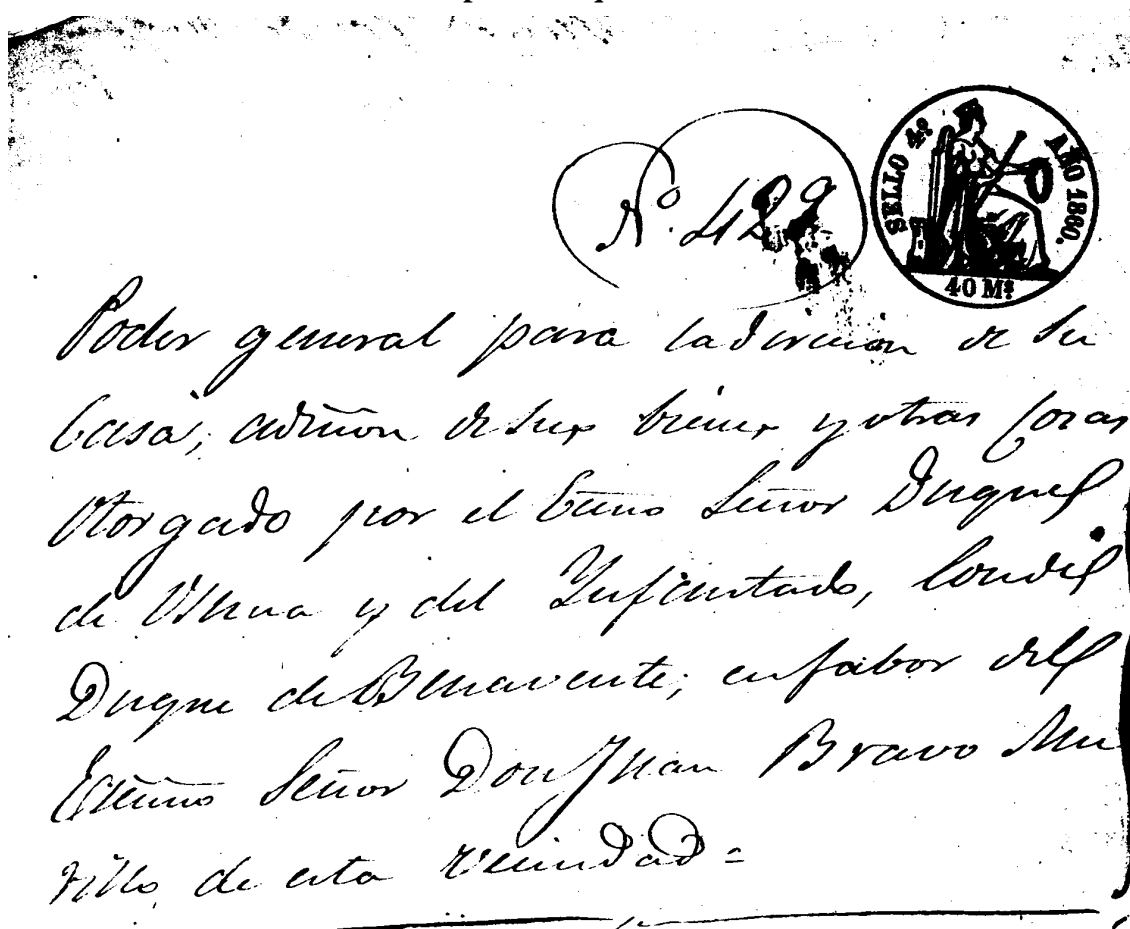 Nº. 429
SELLO 4º AÑO 1860.
40 Mˢ
Poder general para la direccion de su
Casa, admon de sus bienes y otras cosas
otorgado por el Excmo Señor Duque
de Osuna y del Ynfantado, Conde
Duque de Benavente, en fabor del
Excmo Señor Don Juan Bravo Mu
rillo, de esta vecindad =